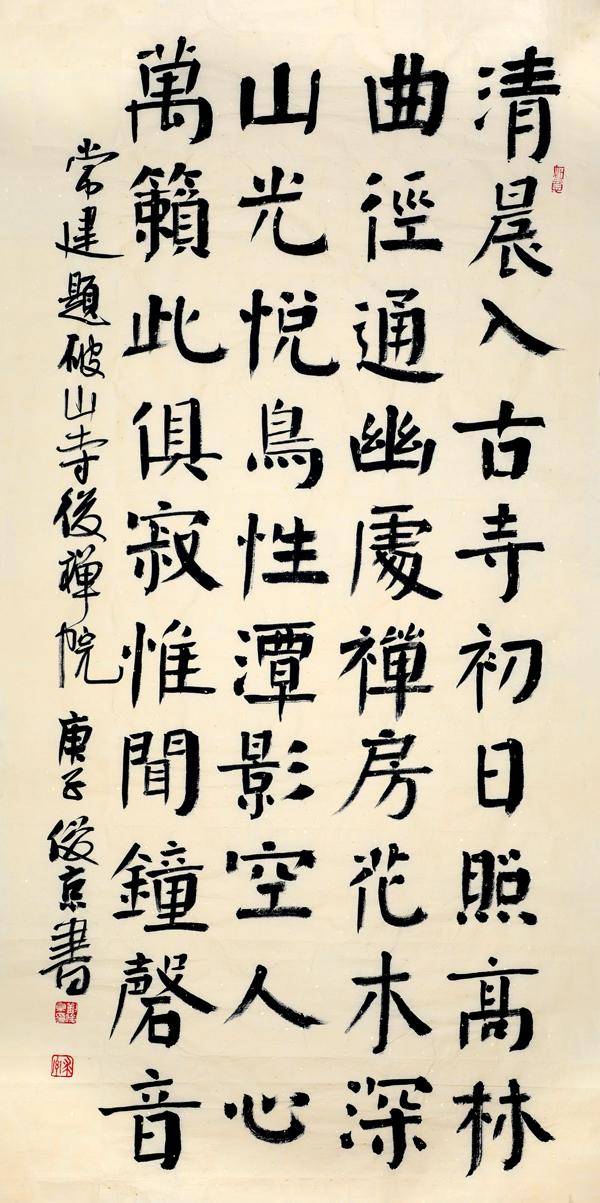 清晨入古寺初日照高林
曲徑通幽處禪房花木深
山光悅鳥性潭影空人心
萬籟此俱寂惟聞鐘磬音
常建題破山寺後禪院 庚子俊京書